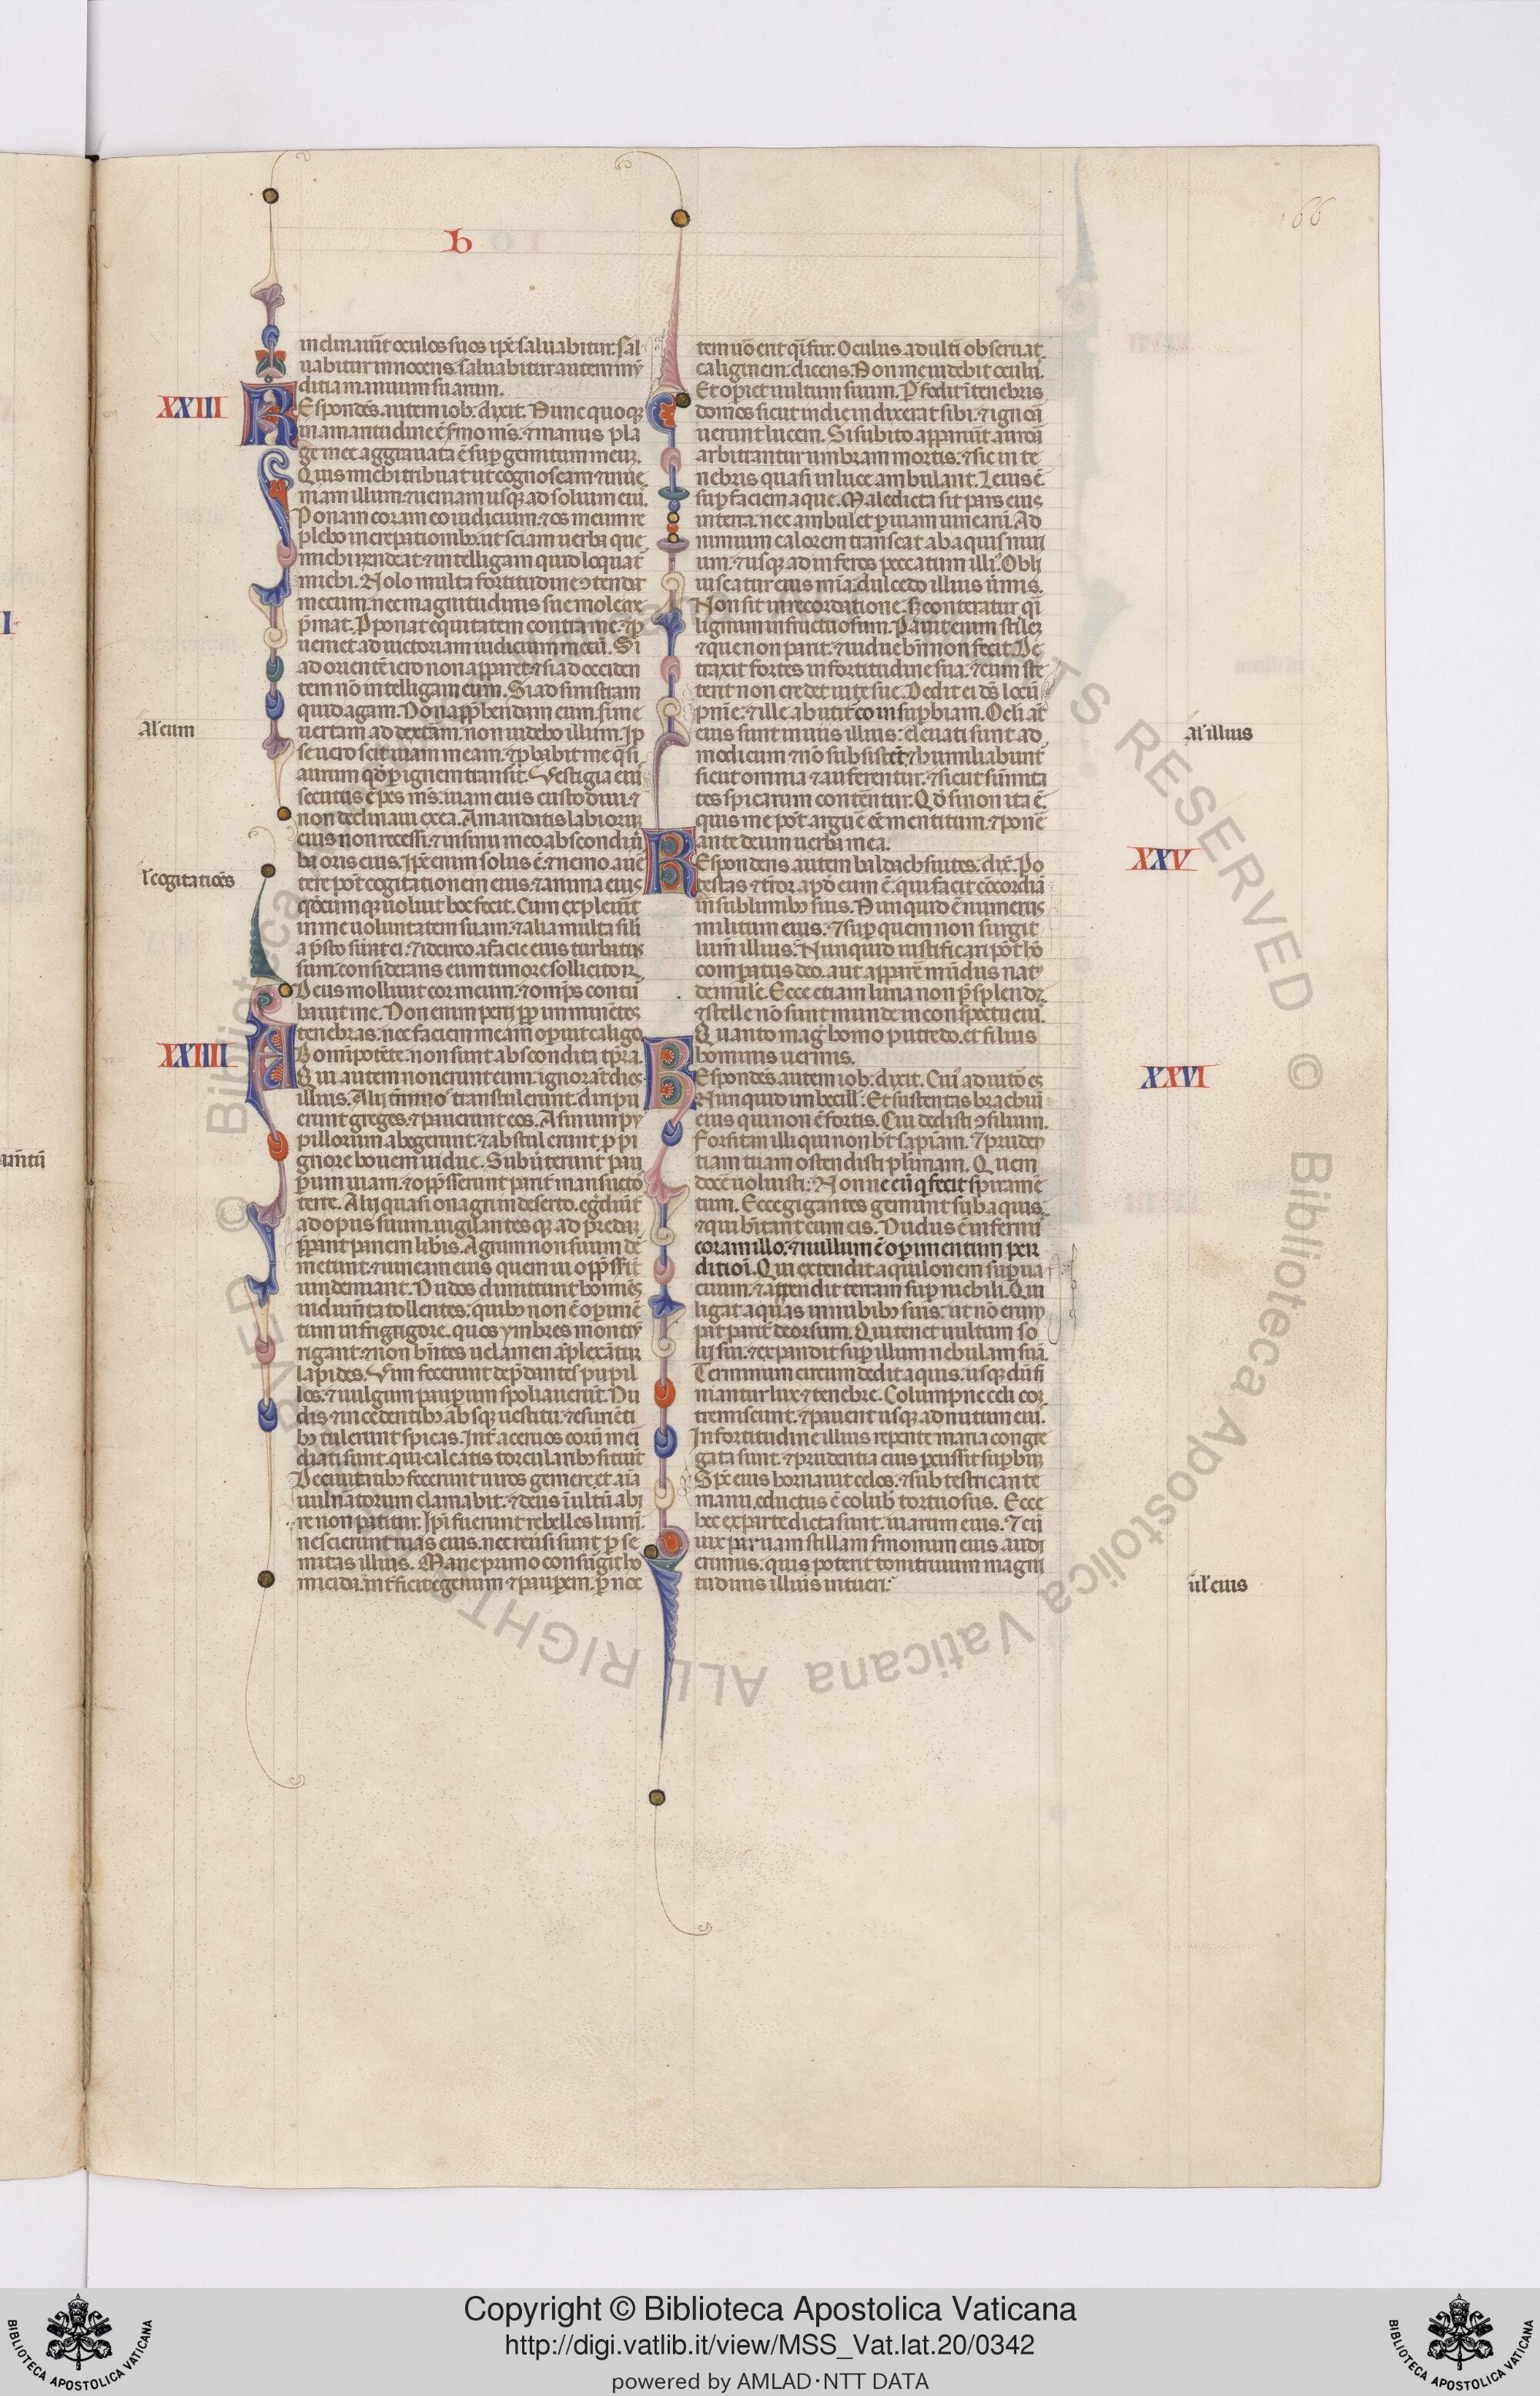 b
166
inclinaũit oculos suos ip̃e saluabitur. sal
uabitur innocens. saluabitur autem mũ
ditia manuum suarum.
XXIII
REspondẽs autem iob. dixit. Nunc quoqꝫ
in amaritudine ẽ s̃mo m̃s. ⁊ manus pla
ge mee aggrauata ẽ suꝑ gemitum meuꝫ.
Quis michi tribuat ut cognoscam ⁊ inue
niam illum. ⁊ ueniam usqꝫ ad solium eiꝰ.
Ponam coram eo iudicium. ⁊ os meum re
plebo increpationibꝫ. ut sciam uerba que
michi rñdeat. ⁊ intelligam quid loquat̃
michi. Nolo multa fortitudine ↄtendat
mecum. nec magnitudinis sue mole me
p̃mat. Proponat equitatem contra me. ⁊ ꝑ
ueniet ad uictoriam iudicium meũ. Si
ad orientẽ iero non apparet. ⁊ si ad occiden
tem nõ intelligam eum. Si ad sinistram
quid agam. Non app̃hendam eum. si me
Al' eum
uertam ad dextãm. non uidebo illum. Ip̃
se uero scit uiam meam. ⁊ ꝓbabit me q̃si
aurum qd̃ ꝑ ignem transit. Vestigia eiꝰ
secutus ẽ pes m̃s. uiam eius custodiui. ⁊
non declinaui ex ea. A mandatis labiorum
eius non recessi. ⁊ in sinu meo abscondi ũ
ba oris eius. Ip̃e enim solus ẽ. ⁊ nemo aũe
l' cogitatiões
tere põt cogitationem eius. ⁊ anima eius
qd̃cumqꝫ uoluit hoc fecit. Cum expleũit
in me uoluntatem suam. ⁊ alia multa sili
a p̃sto sũnt ei. ⁊ idcirco a facie eius turbatus
sum. considerans eum timore sollicitor.
Deus molliuit cor meum. ⁊ omip̃s contũ
bauit me. Non enim perij ꝓp̃ imminẽtes
tenebras. nec faciem meam oꝑuit caligo.
XXIIII
Ab omĩpotẽte. non sunt abscondita tp̃ra.
Qui autem nouerunt eum. ignorãt dies
illius. Alij t̃minos transtulerunt. diripu
erunt greges. ⁊ pauerunt eos. Asinum pu
pillorum abegerunt. ⁊ abstulerunt ꝓ pi
gnore bouem uidue. Subũterunt pau
ꝑum uiam. ⁊ opp̃sserunt parit̃ mansueto
s terre. Alij quasi onagri in deserto. egr̃diũt̃
ad opus suum. uigilantesqꝫ ad predam
p̃parant panem lib̃is. Agrum non suum de
metunt. ⁊ uineam eius quem ui opp̃ssit̃
uindemiant. Nudos dimittunt homies
indumẽta tollentes. quibꝫ non ẽ oꝑimẽ
tum in frigrigore. quos ymbres montiũ
rigant. ⁊ non hñtes uelamen ãplexãtur
lapides. Vim fecerunt dep̃dantes pupil
los. ⁊ uulgum pauꝑum spoliauerũt. Nu
dis ⁊ incedentibꝫ absque uestitu. ⁊ esurieti
bꝫ tulerunt spicas. Int̃ aceruos eorũ meri
diati sunt. qui calcatis torcularibꝫ sitiũt̃
De ciuitatibꝫ fecerunt uiros gemere. et aĩa
uulñatorum clamabit. ⁊ deus ĩultũ abi
re non patitur. Ip̃i fuerunt rebelles lumĩ.
nescierunt uias eius. nec reũsi sunt ꝑ se
mitas illius. Mane primo consurgit ho
micida. int̃ficit egenum ⁊ pauꝑem. ꝑ noc
tem ũo erit q̃si fur. Oculus adult̃i obseruat
caliginem. dicens. Non me uidebit oculꝰ.
Et oꝑiet uultum suum. Perfodit ĩ tenebris
domos sicut in die indixerat sibi. ⁊ ignoã
uerunt lucem. Si subito apparuit̃ aurorã
arbitrantur umbram mortis. ⁊ sic in te
nebris quasi in luce ambulant. Leuis ẽ
suꝑ faciem aque. Maledicta sit pars eius
in terra. nec ambulet ꝑ uiam uinearũ. Ad
nimium calorem transeat ab aquis niui
um. ⁊ usqꝫ ad inferos peccatum illiꝰ. Obli
uiscatur eius mĩa. dulcedo illius ũmis.
Non sit in recordatione. sꝫ conteratur q̃si
lignum infructuosum. Pauit enim stilem
⁊ que non parit. ⁊ uidue bñ non fecit. De
traxit fortes in fortitudine sua. ⁊ cum ste
terit non credet uite sue. Dedit ei dẽs locũ
pñie. ⁊ ille abutit̃ eo in suꝑbiam. Oculi aũt
Al' illius
eius sunt in uiis illius. eleuati sunt ad
modicum ⁊ nõ subsistẽt. ⁊ humiliabunt̃
sicut omnia ⁊ auferentur. ⁊ sicut sũmita
tes spicarum conterẽntur. Qd̃ si non ita ẽ.
quis me põt arguẽ ẽe mentitum. ⁊ ponẽ
ante deum uerba mea.
XXV
REspondens autem baldach suites. dix̃. Po
testas ⁊ t̃ror apd̃ eum ẽ. qui facit cõcordiã
in sublimibꝫ suis. Nunquid ẽ numerus
militum eius. ⁊ suꝑ quem non surgit
lumen illius. Nunquid iustificari põt hõ
comparatus deo. aut apparẽ mũdus natꝰ
de mulie. Ecce etiam luna non p̃splendet.
⁊ stelle nõ sunt munde in conspectu eiꝰ.
Quanto mag̃ homo putredo. et filius
hominis uermis.
XXVI
REspondẽs autem iob. dixit. Cuiꝰ adiutõr es
Nunquid imbecill'. Et sustentas brachiũ
eius qui non ẽ fortis. Cui dedisti ↄsilium.
Forsitan illi qui non hẽt sapiam. ⁊ pruden
tiam tuam ostendisti plĩmam. Quem
docẽ uoluisti. Nonne eũ q̃ fecit spiramẽ
tum. Ecce gigantes gemunt sub aquis.
⁊ qui hĩtant cum eis. Nudus ẽ infernꝰ
coram illo. ⁊ nullum ẽ oꝑimentum per
ditioĩ. Qui extendit aquilonem suꝑ ua
cuum. ⁊ appendit terram suꝑ nichili. Qui
ligat aquas in nubibꝫ suis. ut nõ erum
pãt parit̃ deorsum. Qui tenet uultum so
lij sui. ⁊ expandit suꝑ illum nebulam suã.
Terminum circumdedit aquis. usqꝫ dũ fi
niantur lux ⁊ tenebre. Columpne celi con
tremiscunt. ⁊ pauent usqꝫ ad nutum eiꝰ.
In fortitudine illius repente maria congre
gata sunt. ⁊ prudentia eius ꝑcussit suꝑbũ
Spẽ eius hornauit celos. ⁊ obstetricante
manu. eductus ẽ coluber tortuosus. Ecce
hec ex parte dicta sunt. uiarum eius. ⁊ cũ
uix paruam stillam s̃monum eius audi
erimus. quis poterit tonitruum magni
ũl' eius
tudinis illius intueri.
Copyright © Biblioteca Apostolica Vaticana
http://digi.vatlib.it/view/MSS_Vat.lat.20/0342
powered by AMLAD·NTT DATA
BIBLIOTECA APOSTOLICA VATICANA
BIBLIOTECA APOSTOLICA VATICANA